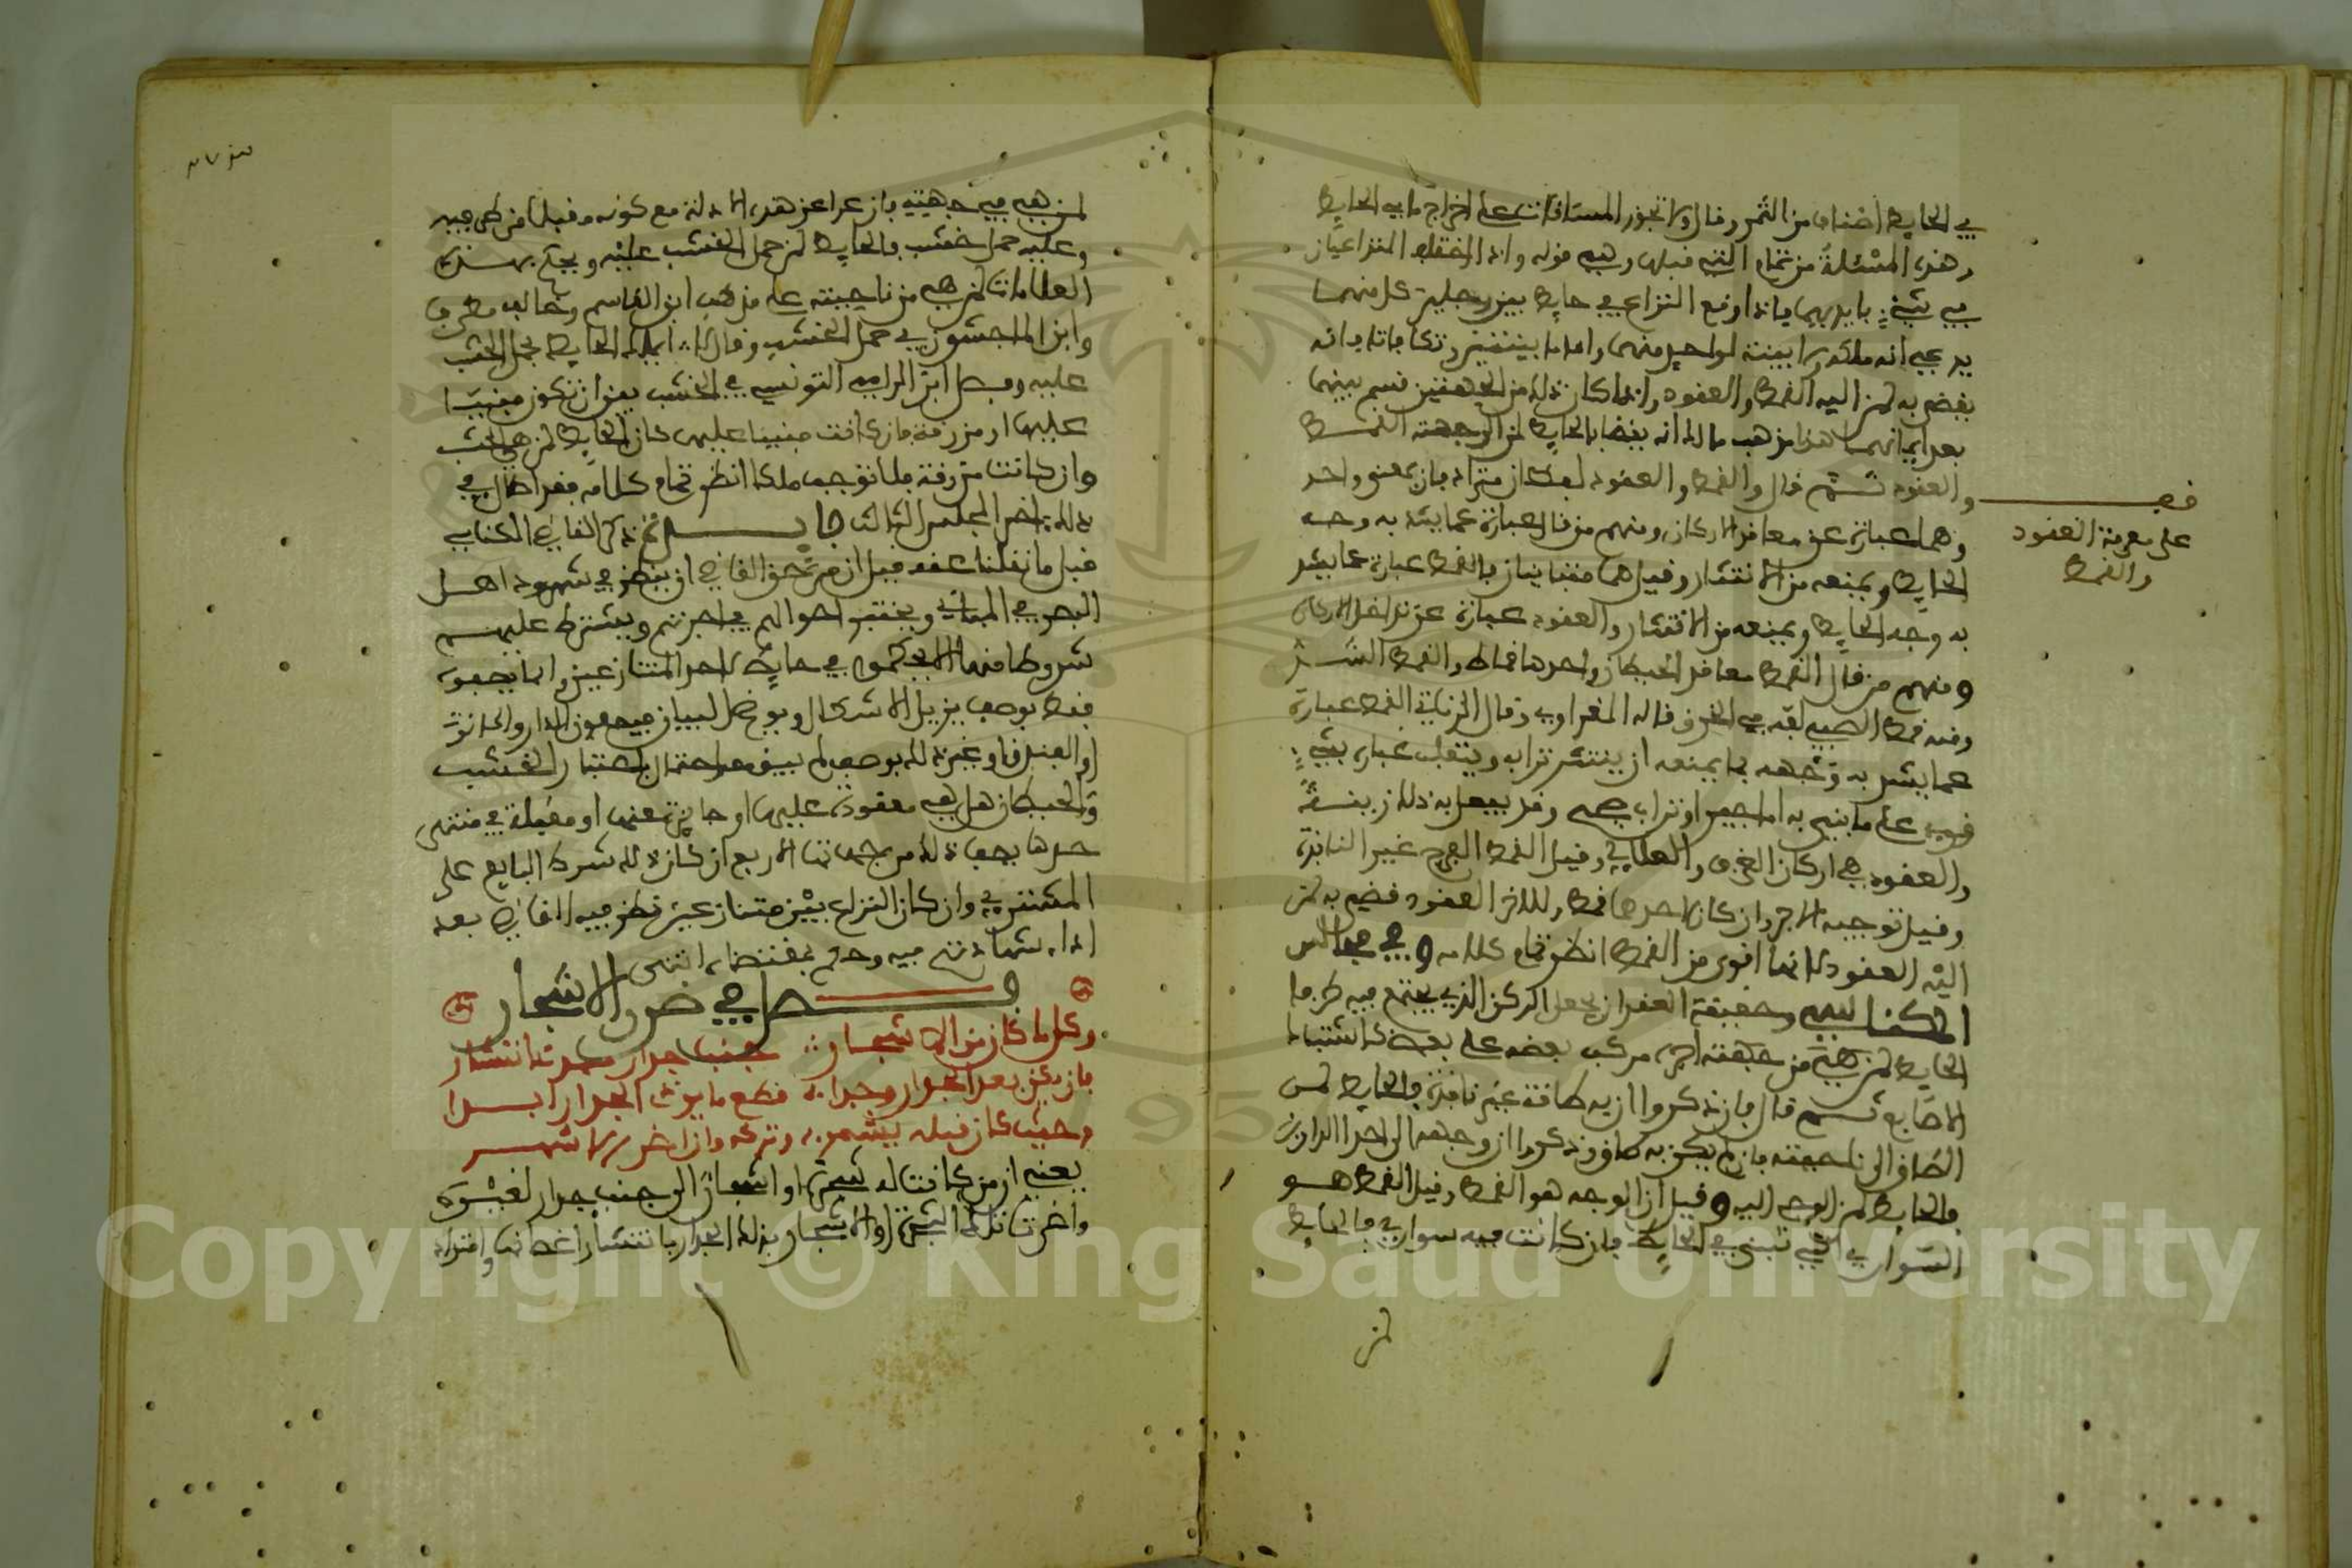 في الحايط اصناف من الثمر وقال ولا تجوز المساقات على اخراج ما في الحايط
وهذه المسئلة من تمام التي قبلها وهي قوله واذا اختلف المتداعيان
في شيء بايديهما فاذا وقع النزاع في حايط بين رجلين كل منهما
يدعي انه ملكه ولا بينة لواحد منهما واما ببينتين وتكافاتا فانه
يقضي به لمن اليه القمط والعقود واذا كان ذلك من الجهتين قسم بينهما
بعد ايمانهما هذا مذهب مالك انه يقضا بالحايط لمن الى جهته القمط
والعقود ثم قال والقمط والعقود لفظان مترادفان بمعنى واحد
وهما عبارة عن معاقد الاركان ومنهم من قال عبارة عما يشد به وجه
الحايط ويمنعه من الانتشار وقيل هما متباينان فالقمط عبارة عما يشد
به وجه الحايط ويمنعه من الانتشار والعقود عبارة عن تداخل الاركان
ومنهم من قال القمط معاقد الحيطان واحدها قماط والقمط الشد
ومنه قمط الصبي لفه في الخرق قاله المغراوي وقال الزناتي القمط عبارة
عما يشد به وجهه بما يمنعه ان ينتشر ترابه ويتقلب غباره بشيء
قوي على ما بني به اما بجير او تراب وقد يفعل به ذلك زينة
والعقود هي اركان الغرف والعلالي وقيل القمط الفرج غير النافذة
وقيل توجيه الاجر وان كان لاحدهما قمط وللاخر العقود قضي به لمن
اليه العقود لانها اقوى من القمط انظر تمام كلامه وفي مجالس
المكناسي وحقيقة العقد ان يجعل الركن الذي يجتمع فيه طرفا
الحايط لمن هي من جهته اجره مركب بعضه على بعض كاشتباك
الاصابع ثم قال فان ذكروا ان به طاقة غير نافذة فالحايط لمن
الطاق الى ناحيته فان لم يكن به طاق وذكروا ان وجهه الى احد الدارين
فالحايط لمن الوجه اليه وقيل ان الوجه هو القمط وقيل القمط هو
السواري التي تبنى في الحايط فان كانت فيه سواري فالحايط
لمن
فف
على معرفة العقود
والقمط
لمن هي في جهته فان عرا عن هذه الادلة مع كونه
وعليه حمل خشب فالحايط لمن حمل الخشب عليه ويحكم بهذه
العلامات لمن هي من ناحيته على مذهب ابن القاسم وخالف مطرف
وابن الماجشون في حمل الخشب وقال لا يملك الحايط بحمل الخشب
عليه وفصل ابن الرامي التونسي في الخشب بين ان تكون مبنيا
عليها او مزرفة فان كانت مبنيا عليها كان الحايط لمن هي الخشب
وان كانت مزرفة فلا توجب ملكا انظر تمام كلامه فقد اطال في
ذلك اخر المجلس الثالث فايدة ذكر القاضي المكناسي
قبل ما نقلنا عنه قبل ان من حق القاضي ان ينظر في شهود اهل
البصر في المباني ويختبر احوالهم في اجرتهم ويشترط عليهم
شروطا منها الا يحكموا في حايط لاحد المتنازعين وانما يصفونه
فقط بوصف يزيل الاشكال ويوضح البيان فيصفون الدار والحانوت
او الفندق او غير ذلك بوصف لم يبق معه احتمال باعتبار الخشب
والحيطان هل هي معقودة عليها او خارجة عنها او مقبلة في منتهى
حدها يصف ذلك من جهاتها الاربع ان كان ذلك شرط البايع على
المشتري وان كان النزاع بين متنازعين نظر فيه القاضي بعد
اداء شهادتهم فيه وحكم بمقتضاه انتهى
فصل في ضرر الاشجار
وكل ما كان من الاشجار جنب جدار مبدي انتشار
فان يكن بعد الجدار وجدا قطع ما يوذي الجدار ابدا
وحيث كان قبله يشمر وتركه وان اضر الاشهر
يعني ان من كانت له شجرة او اشجار الى جنب جدار لغيره
واضرت تلك الشجرة او الاشجار بذلك الجدار بانتشار اغصانها وامتداد